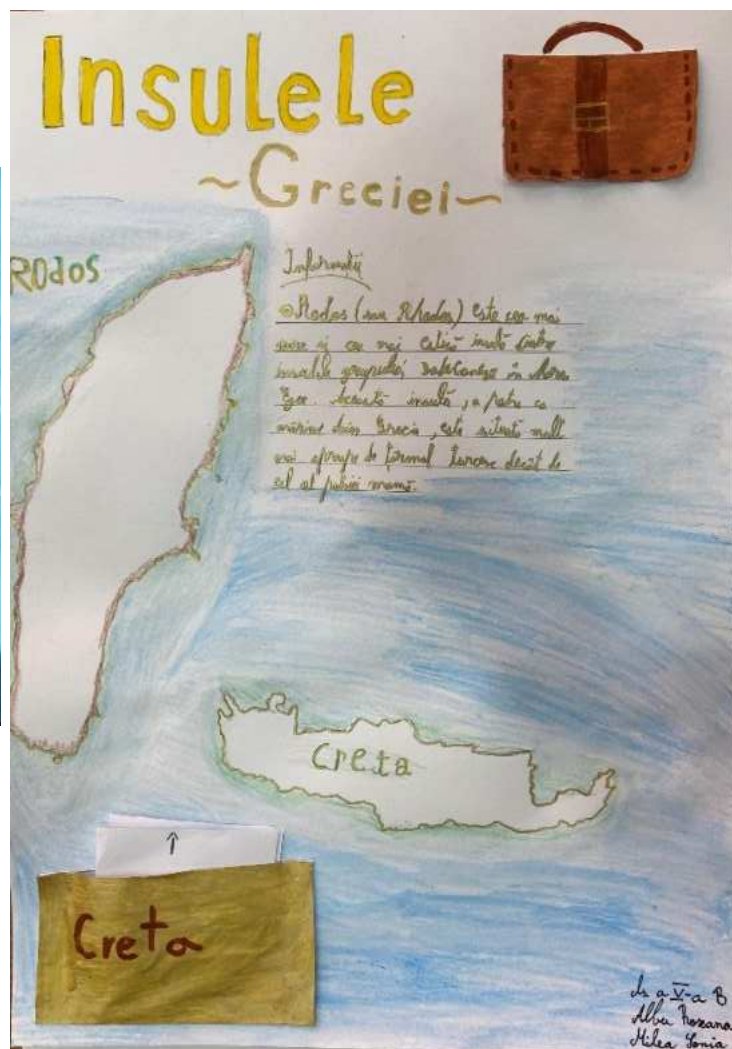 Insulele
~Greciei~
Rodos
Informații
Rodos (sau Rhodos) este cea mai
mare și cea mai insulă dintre
insulele grupului în Marea
Egee. Această insulă, a patra ca
mărime din Grecia, este situată mult
mai aproape de țărmul turcesc decât de
cel al patriei mamă.
Creta
↑
Creta
cls a V-a B
Albu Roxana
Milea Sonia